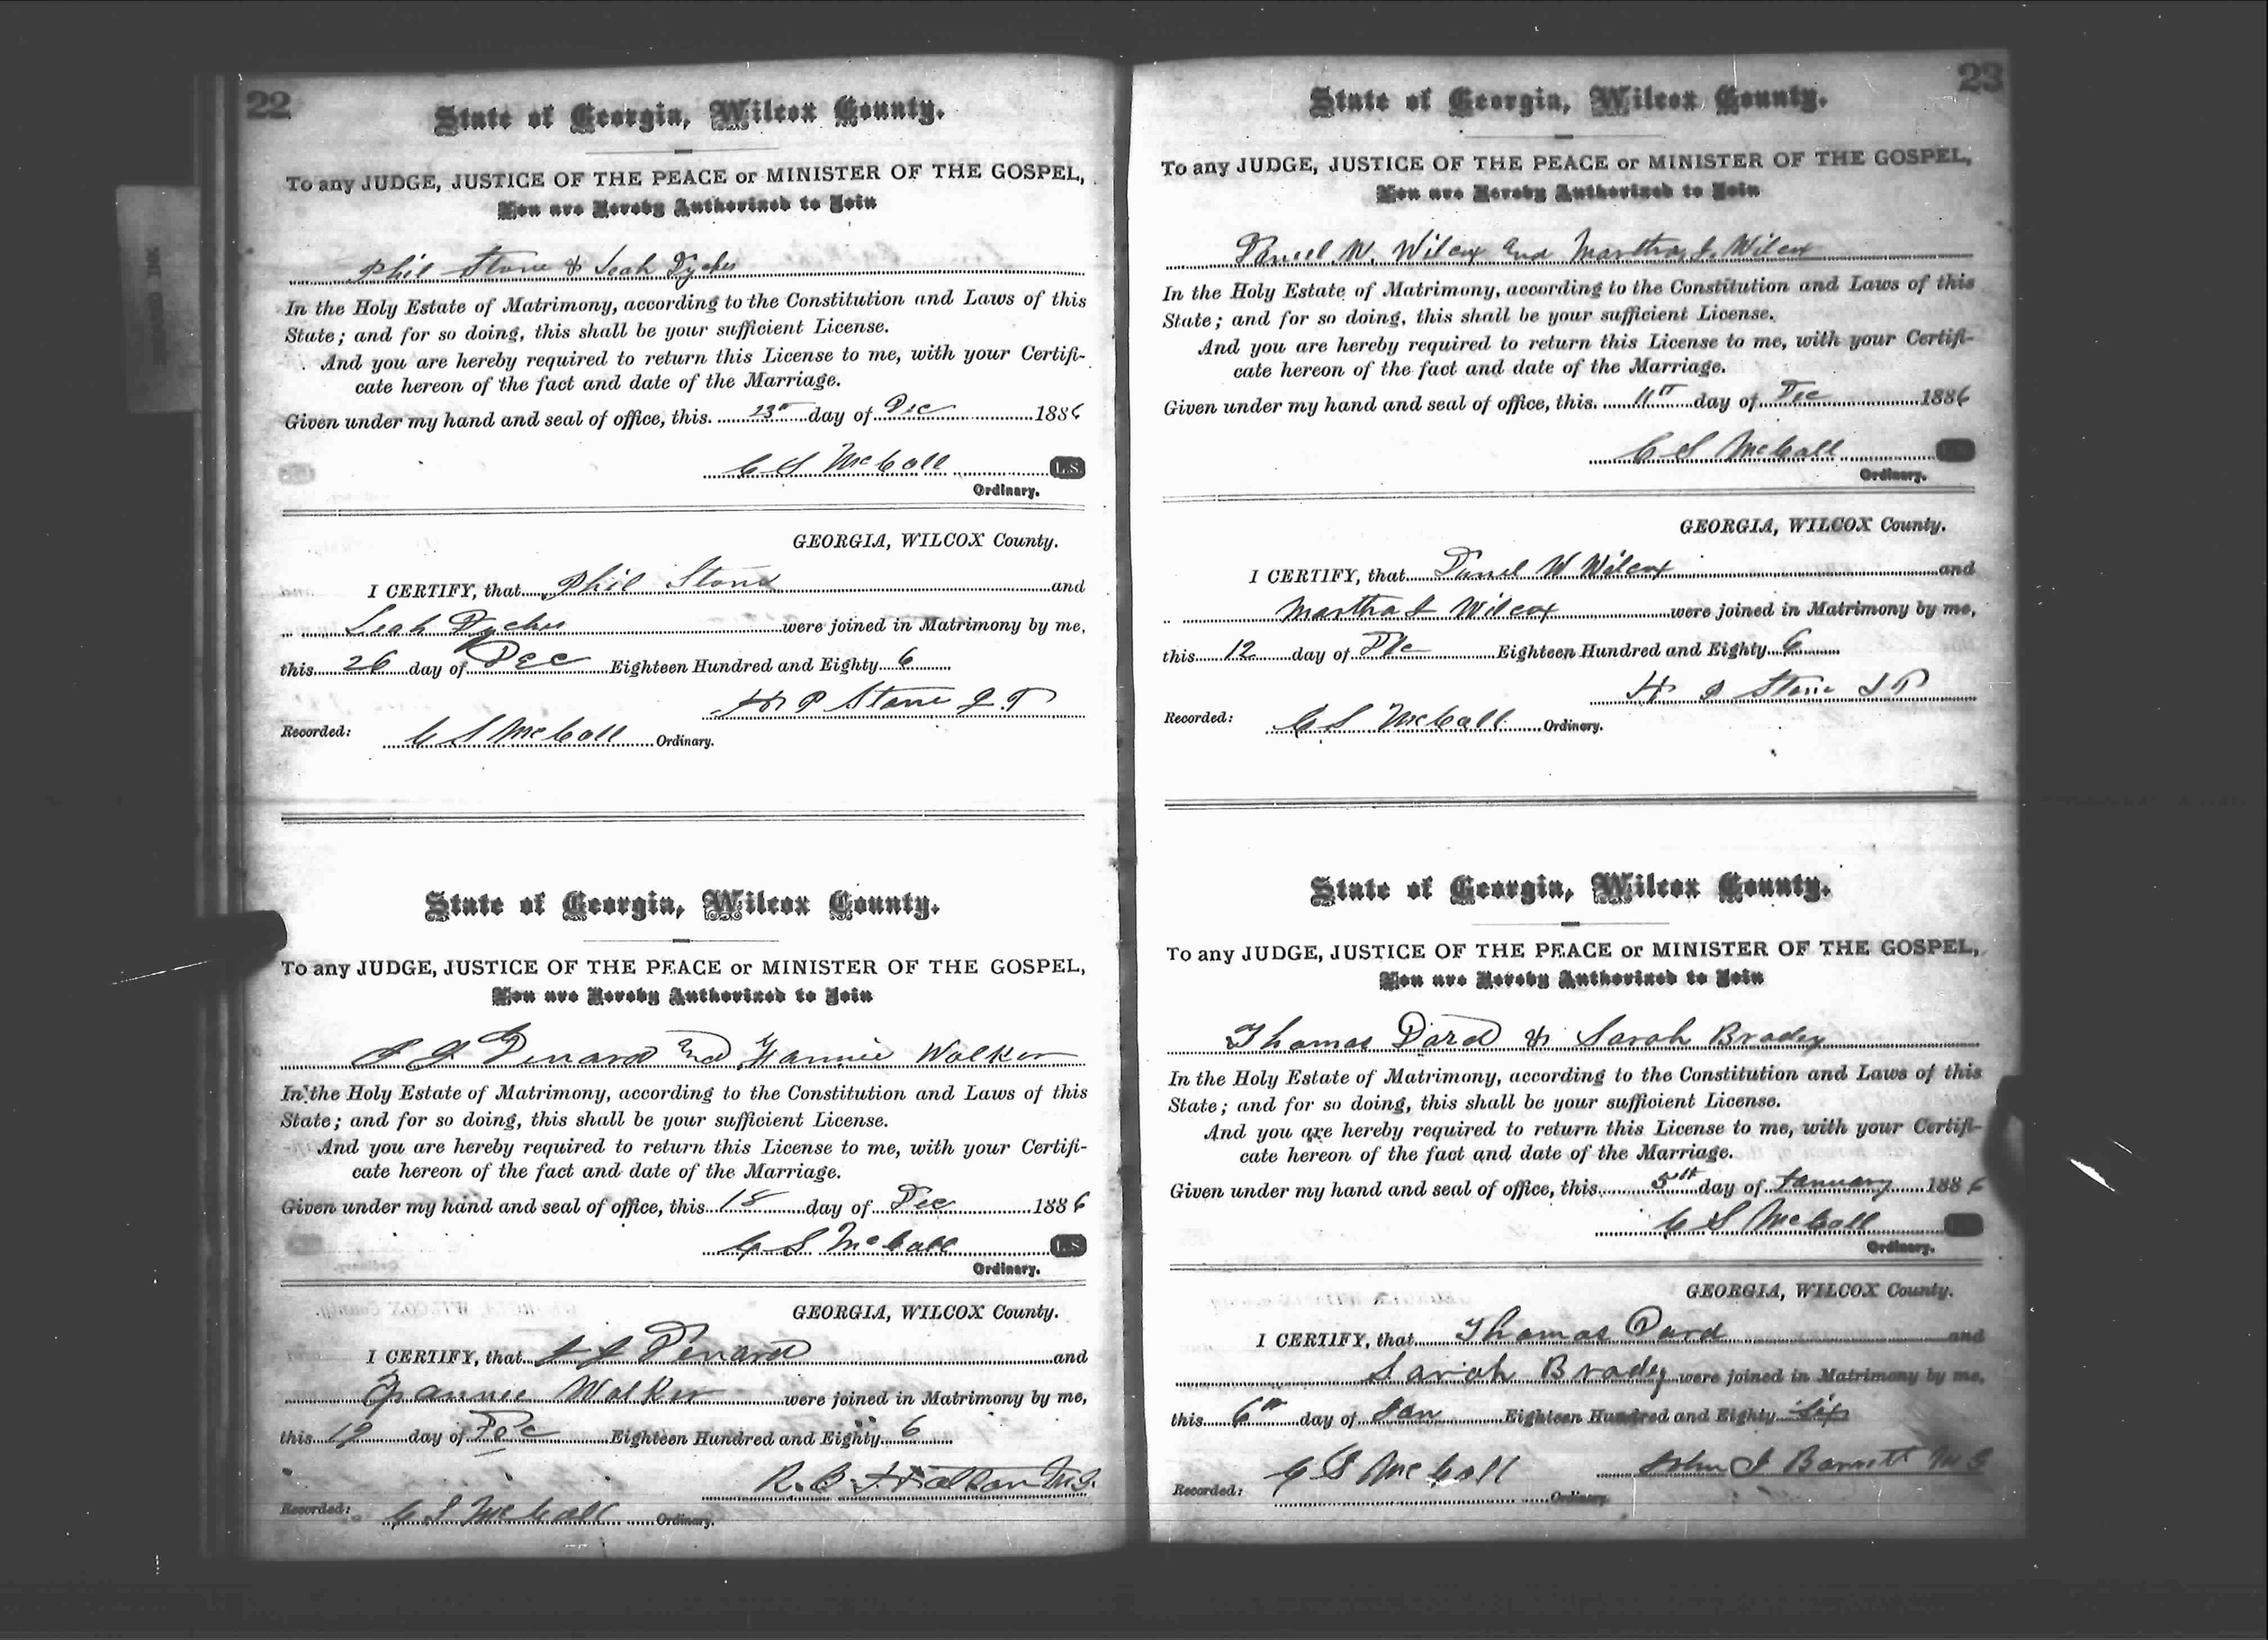 22
State of Georgia, Wilcox County.
To any JUDGE, JUSTICE OF THE PEACE or MINISTER OF THE GOSPEL,
You are Hereby Authorized to Join
Phil Stone & Leah Dykes
In the Holy Estate of Matrimony, according to the Constitution and Laws of this
State; and for so doing, this shall be your sufficient License.
And you are hereby required to return this License to me, with your Certifi-
cate hereon of the fact and date of the Marriage.
Given under my hand and seal of office, this 23rd day of Dec 1886
C S McCall L.S.
Ordinary.
GEORGIA, WILCOX County.
I CERTIFY, that Phil Stone and
Leah Dykes were joined in Matrimony by me,
this 26 day of Dec Eighteen Hundred and Eighty 6
P Stone J P
Recorded: C S McCall Ordinary.
State of Georgia, Wilcox County.
To any JUDGE, JUSTICE OF THE PEACE or MINISTER OF THE GOSPEL,
You are Hereby Authorized to Join
Denard and Fannie Walker
In the Holy Estate of Matrimony, according to the Constitution and Laws of this
State; and for so doing, this shall be your sufficient License.
And you are hereby required to return this License to me, with your Certifi-
cate hereon of the fact and date of the Marriage.
Given under my hand and seal of office, this 18 day of Dec 1886
C S McCall L.S.
Ordinary.
GEORGIA, WILCOX County.
I CERTIFY, that Denard and
Fannie Walker were joined in Matrimony by me,
this 19 day of Dec Eighteen Hundred and Eighty 6
R. M.G.
Recorded: C S McCall Ordinary.
23
State of Georgia, Wilcox County.
To any JUDGE, JUSTICE OF THE PEACE or MINISTER OF THE GOSPEL,
You are Hereby Authorized to Join
W. Wilcox and Martha Wilcox
In the Holy Estate of Matrimony, according to the Constitution and Laws of this
State; and for so doing, this shall be your sufficient License.
And you are hereby required to return this License to me, with your Certifi-
cate hereon of the fact and date of the Marriage.
Given under my hand and seal of office, this 11th day of Dec 1886
C S McCall
Ordinary.
GEORGIA, WILCOX County.
I CERTIFY, that W Wilcox and
Martha Wilcox were joined in Matrimony by me,
this 12 day of Dec Eighteen Hundred and Eighty 6
Stone J P
Recorded: C S McCall Ordinary.
State of Georgia, Wilcox County.
To any JUDGE, JUSTICE OF THE PEACE or MINISTER OF THE GOSPEL,
You are Hereby Authorized to Join
Thomas Dard & Sarah Bradey
In the Holy Estate of Matrimony, according to the Constitution and Laws of this
State; and for so doing, this shall be your sufficient License.
And you are hereby required to return this License to me, with your Certifi-
cate hereon of the fact and date of the Marriage.
Given under my hand and seal of office, this 5th day of January 1886
C S McCall
Ordinary.
GEORGIA, WILCOX County.
I CERTIFY, that Thomas Dard and
Sarah Bradey were joined in Matrimony by me,
this 6th day of Jan Eighteen Hundred and Eighty Six
John J Barrett M G
Recorded: C S McCall Ordinary.